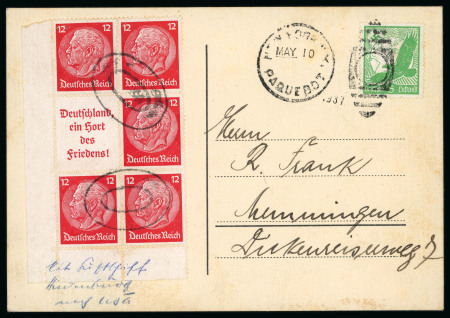 12 12
Deutsches Reich Deutsches Reich
Deutschland,
ein Hort
des
Friedens!
12
Deutsches Reich
12 12
Deutsches Reich Deutsches Reich
MAY 10
PAQUEBOT
1937
Luftpost
Herrn
R. Frank
Memmingen
mit Luftschiff
Hindenburg
nach USA